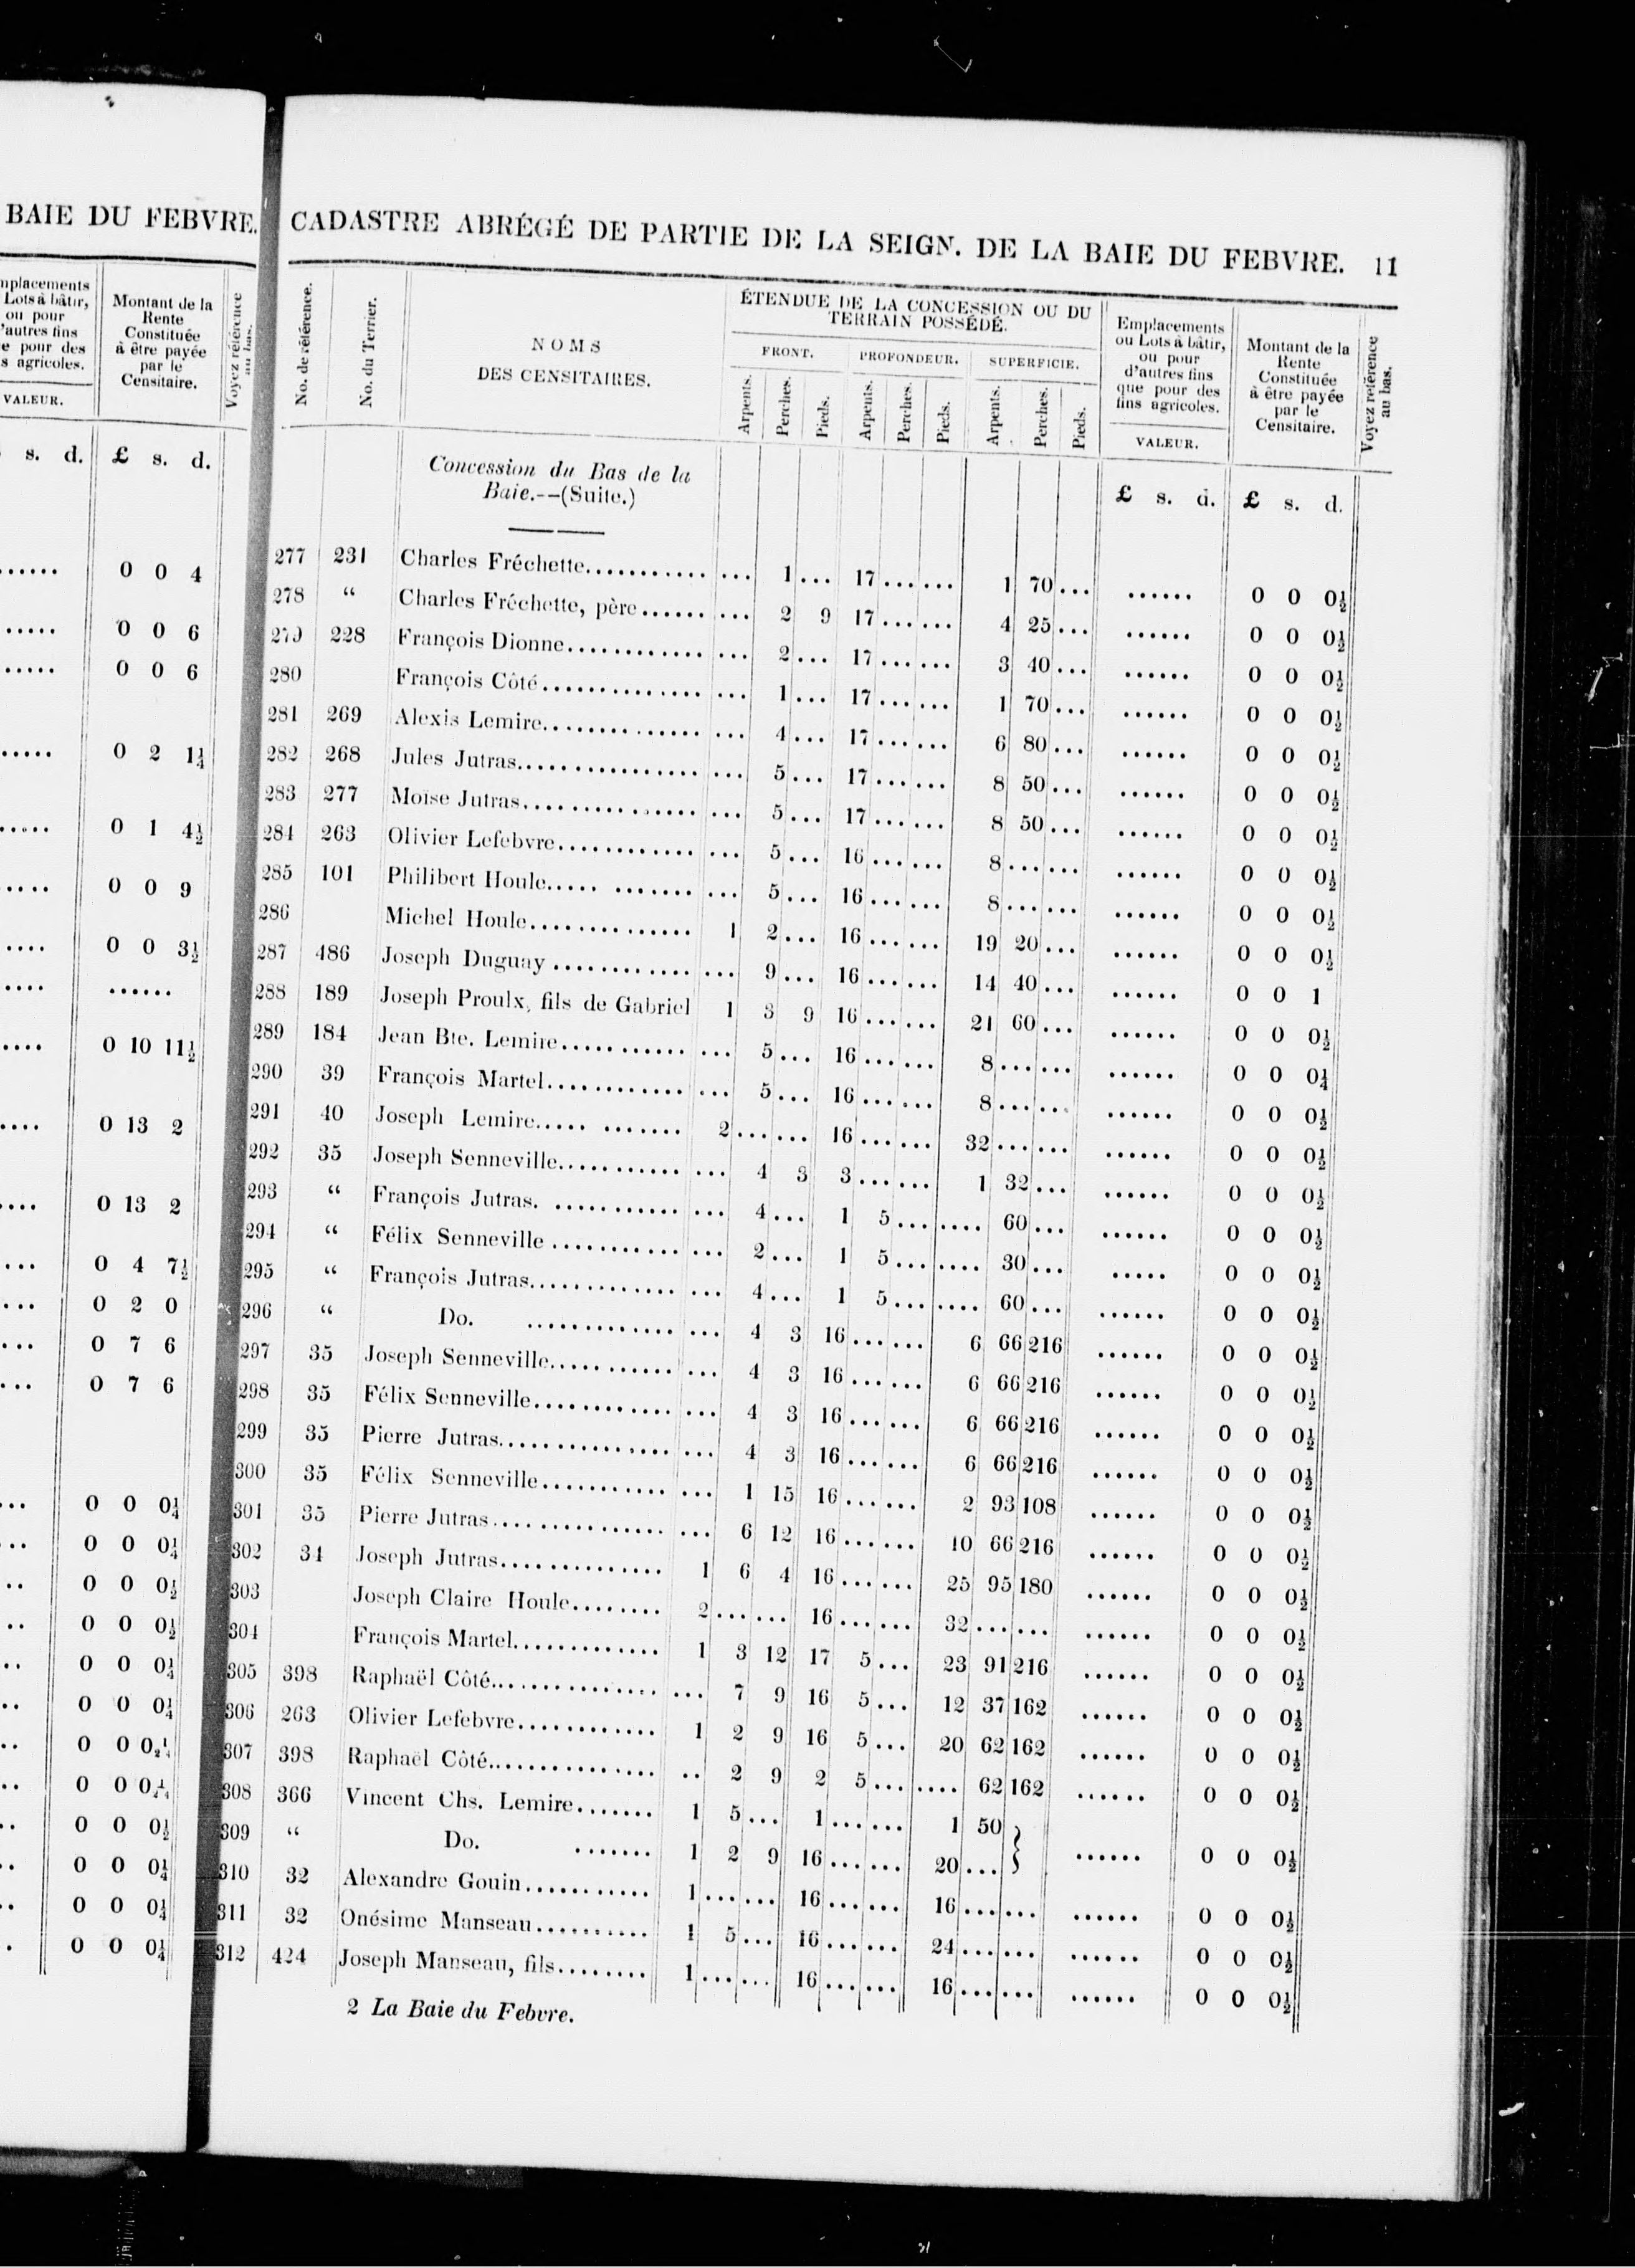 BAIE DU FEBVRE.
mplacements
Lots à bâtir,
ou pour
'autres fins
e pour des
s agricoles.
VALEUR.
Montant de la
Rente
Constituée
à être payée
par le
Censitaire.
Voyez référence
au bas.
s. d. £ s. d.
...... 0 0 4
..... 0 0 6
..... 0 0 6
..... 0 2 1¼
..... 0 1 4½
.... 0 0 9
.... 0 0 3½
.... ......
.... 0 10 11½
.... 0 13 2
.... 0 13 2
... 0 4 7½
... 0 2 0
... 0 7 6
... 0 7 6
... 0 0 0¼
... 0 0 0¼
.. 0 0 0½
.. 0 0 0½
.. 0 0 0¼
.. 0 0 0¼
.. 0 0
.. 0 0
.. 0 0 0½
.. 0 0 0¼
.. 0 0 0¼
. 0 0 0¼
CADASTRE ABRÉGÉ DE PARTIE DE LA SEIGN. DE LA BAIE DU FEBVRE. 11
No. de référence.
No. du Terrier.
NOMS
DES CENSITAIRES.
ÉTENDUE DE LA CONCESSION OU DU
TERRAIN POSSÉDÉ.
FRONT. PROFONDEUR. SUPERFICIE.
Arpents. Perches. Pieds. Arpents. Perches. Pieds. Arpents. Perches. Pieds.
Emplacements
ou Lots à bâtir,
ou pour
d'autres fins
que pour des
fins agricoles.
VALEUR.
Montant de la
Rente
Constituée
à être payée
par le
Censitaire.
Voyez référence
au bas.
£ s. d. £ s. d.
Concession du Bas de la
Baie.--(Suite.)
277 231 Charles Fréchette........... ... 1 ... 17 ... ... 1 70 ... ...... 0 0 0½
278 “ Charles Fréchette, père...... ... 2 9 17 ... ... 4 25 ... ...... 0 0 0½
279 228 François Dionne............ ... 2 ... 17 ... ... 3 40 ... ...... 0 0 0½
280 François Côté.............. ... 1 ... 17 ... ... 1 70 ... ...... 0 0 0½
281 269 Alexis Lemire.............. ... 4 ... 17 ... ... 6 80 ... ...... 0 0 0½
282 268 Jules Jutras................ ... 5 ... 17 ... ... 8 50 ... ...... 0 0 0½
283 277 Moïse Jutras............... ... 5 ... 17 ... ... 8 50 ... ...... 0 0 0½
284 263 Olivier Lefebvre............ ... 5 ... 16 ... ... 8 ... ... ...... 0 0 0½
285 101 Philibert Houle..... ....... ... 5 ... 16 ... ... 8 ... ... ...... 0 0 0½
286 Michel Houle.............. 1 2 ... 16 ... ... 19 20 ... ...... 0 0 0½
287 486 Joseph Duguay ............ ... 9 ... 16 ... ... 14 40 ... ...... 0 0 1
288 189 Joseph Proulx, fils de Gabriel 1 3 9 16 ... ... 21 60 ... ...... 0 0 0½
289 184 Jean Bte. Lemire........... ... 5 ... 16 ... ... 8 ... ... ...... 0 0 0¼
290 39 François Martel............ ... 5 ... 16 ... ... 8 ... ... ...... 0 0 0½
291 40 Joseph Lemire..... ....... 2 ... ... 16 ... ... 32 ... ... ...... 0 0 0½
292 35 Joseph Senneville........... ... 4 3 3 ... ... 1 32 ... ...... 0 0 0½
293 “ François Jutras. ........... ... 4 ... 1 5 ... .... 60 ... ...... 0 0 0½
294 “ Félix Senneville ........... ... 2 ... 1 5 ... .... 30 ... ..... 0 0 0½
295 “ François Jutras............. ... 4 ... 1 5 ... .... 60 ... ...... 0 0 0½
296 “ Do. ............. ... 4 3 16 ... ... 6 66 216 ...... 0 0 0½
297 35 Joseph Senneville........... ... 4 3 16 ... ... 6 66 216 ...... 0 0 0½
298 35 Félix Senneville............ ... 4 3 16 ... ... 6 66 216 ...... 0 0 0½
299 35 Pierre Jutras............... ... 4 3 16 ... ... 6 66 216 ...... 0 0 0½
300 35 Félix Senneville............ ... 1 15 16 ... ... 2 93 108 ...... 0 0 0½
301 35 Pierre Jutras............... ... 6 12 16 ... ... 10 66 216 ...... 0 0 0½
302 34 Joseph Jutras.............. 1 6 4 16 ... ... 25 95 180 ...... 0 0 0½
303 Joseph Claire Houle........ 2 ... ... 16 ... ... 32 ... ... ...... 0 0 0½
304 François Martel............. 1 3 12 17 5 ... 23 91 216 ...... 0 0 0½
305 398 Raphaël Côté............... ... 7 9 16 5 ... 12 37 162 ...... 0 0 0½
306 263 Olivier Lefebvre............ 1 2 9 16 5 ... 20 62 162 ...... 0 0 0½
307 398 Raphaël Côté............... .. 2 9 2 5 ... .... 62 162 ...... 0 0 0½
308 366 Vincent Chs. Lemire....... 1 5 ... 1 ... ... 1 50 }
309 “ Do. ....... 1 2 9 16 ... ... 20 ... } ...... 0 0 0½
310 32 Alexandre Gouin........... 1 ... ... 16 ... ... 16 ... ... ...... 0 0 0½
311 32 Onésime Manseau.......... 1 5 ... 16 ... ... 24 ... ... ...... 0 0 0½
312 424 Joseph Manseau, fils........ 1 ... ... 16 ... ... 16 ... ... ...... 0 0 0½
2 La Baie du Febvre.